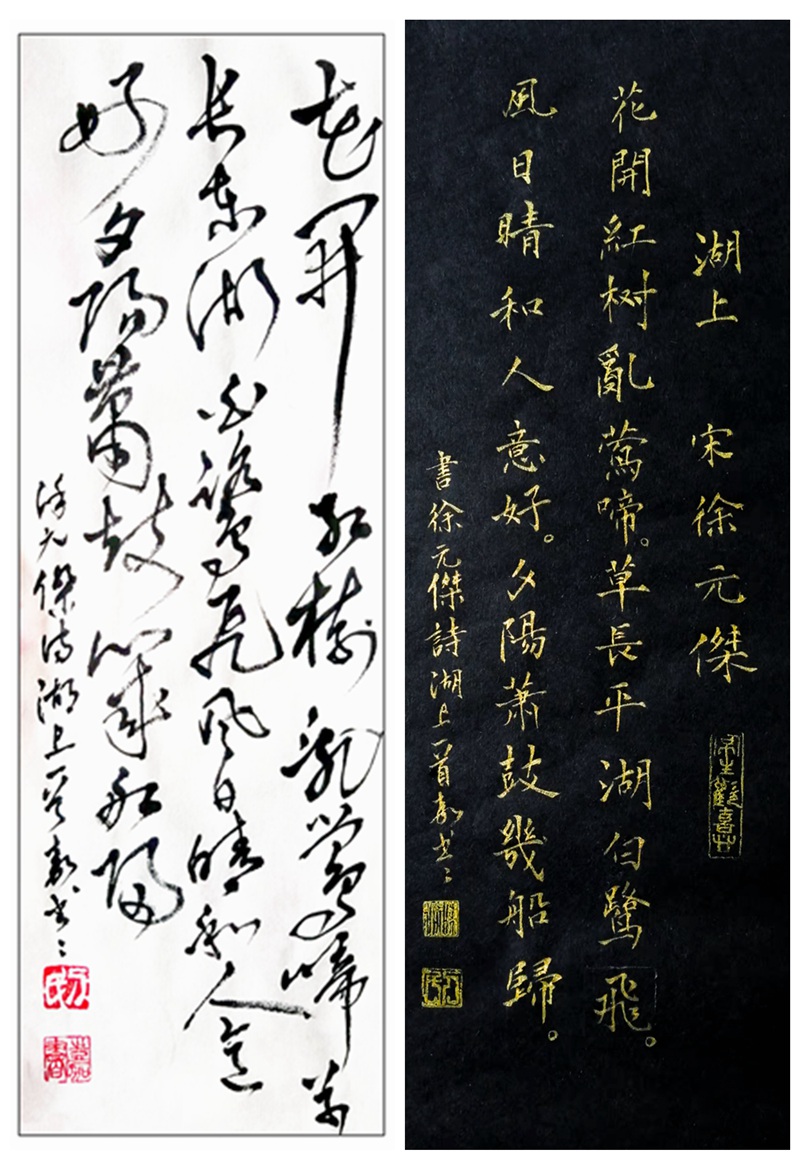 湖上 宋徐元傑
花開紅树亂鶯啼。草長平湖白鷺飛。
風日晴和人意好。夕陽蕭鼓幾船歸。
書徐元傑詩湖上一首
花開紅樹亂鶯啼草
长湖白鷺飛風日晴和人意
好夕陽蕭鼓幾船歸
徐元傑诗湖上一首